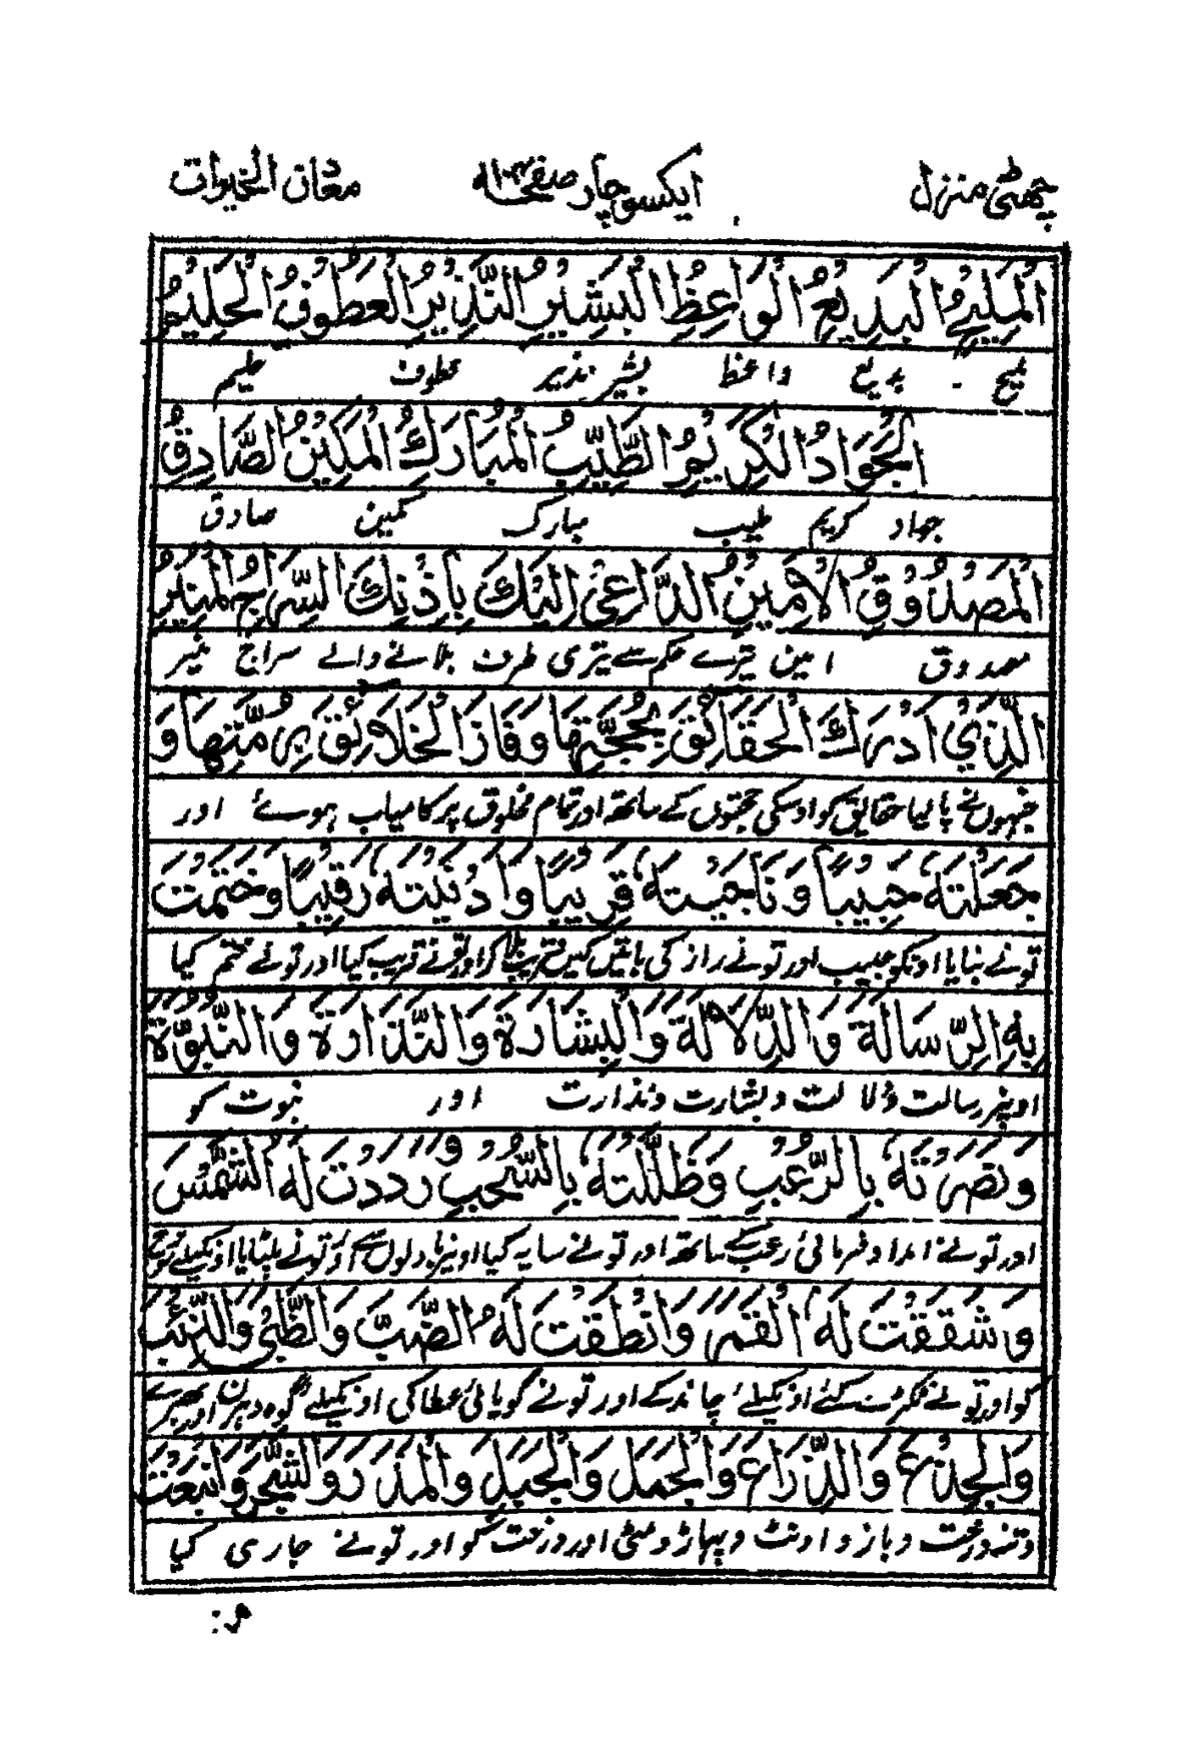 چھٹی منزل ایکسو چار صفحہ ۱۰۴ معدن الخیرات
الْمَلِيْحُ الْبَدِيْعُ الْوَاعِظُ الْبَشِيْرُ النَّذِيْرُ الْعَطُوْفُ الْحَلِيْمُ
ملیح بدیع واعظ بشیر نذیر عطوف حلیم
الْجَوَادُ الْكَرِيْمُ الطَّيِّبُ الْمُبَارَكُ الْمَكِيْنُ الصَّادِقُ
جواد کریم طیب مبارک مکین صادق
الْمَصْدُوْقُ الْاَمِيْنُ الدَّاعِيْ اِلَيْكَ بِاِذْنِكَ السِّرَاجُ الْمُنِيْرُ
مصدوق امین تیرے حکم سے تیری طرف بلانے والے سراج منیر
الَّذِيْ اَدْرَكَ الْحَقَائِقَ بِحُجَّتِهَا وَفَازَ الْخَلَائِقَ بِرُمَّتِهَا وَ
جنہوں نے پا لیا حقایق کو اوسکی حجتوں کے ساتھ اور تمام مخلوق پر کامیاب ہوئے اور
جَعَلْتَهٗ حَبِيْبًا وَنَاجَيْتَهٗ قَرِيْبًا وَاَدْنَيْتَهٗ رَقِيْبًا وَخَتَمْتَ
تونے بنایا اونکو حبیب اور تونے راز کی باتیں کیں قریب بلا کر اور تونے قریب کیا اور تونے ختم کیا
بِهِ الرِّسَالَةَ وَالدِّلَالَةَ وَالْبِشَارَةَ وَالنِّذَارَةَ وَالنُّبُوَّةَ
اونپر رسالت و دلالت و بشارت و نذارت اور نبوت کو
وَنَصَرْتَهٗ بِالرُّعْبِ وَظَلَّلْتَهٗ بِالسُّحُبِ وَرَدَدْتَ لَهُ الشَّمْسَ
اور تونے امداد فرمائی رعب کے ساتھ اور تونے سایہ کیا اونپر بادلوں سے اور تونے پلٹایا اونکیلئے سورج
وَشَقَقْتَ لَهُ الْقَمَرَ وَاَنْطَقْتَ لَهُ الضَّبَّ وَالظَّبْيَ وَالذِّئْبَ
کو اور تونے ٹکڑے کئے اونکیلئے چاند کے اور تونے گویائی عطا کی اونکیلئے گوہ و ہرن اور بھیڑیے
وَالْجِذْعَ وَالذِّرَاعَ وَالْجَمَلَ وَالْجَبَلَ وَالْمَدَرَ وَالشَّجَرَ وَاَنْبَعْتَ
و تنہ درخت و بازو و اونٹ و پہاڑ و مٹی اور درخت کو اور تونے جاری کیا